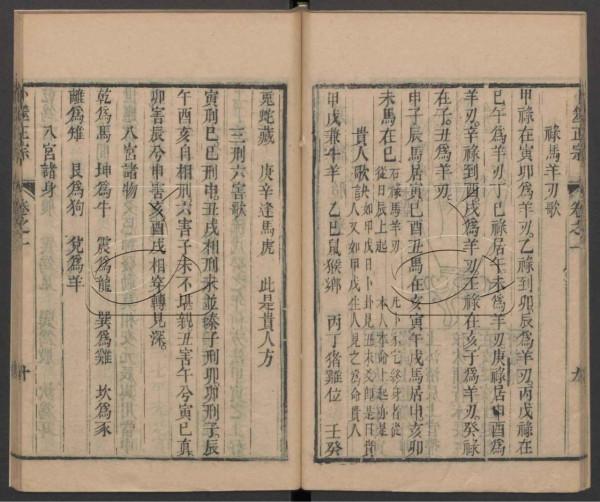 祿馬羊刃歌
甲祿在寅卯爲羊刃乙祿到卯辰爲羊刃丙戊祿在
巳午爲羊刃丁巳祿居午未爲羊刃庚祿居申酉爲
羊刃辛祿到酉戌爲羊刃壬祿在亥子爲羊刃癸祿
在子丑爲羊刃
申子辰馬居寅巳酉丑馬在亥寅午戌馬居申亥卯
未馬在巳
右祿馬羊刃
從日辰上起
貴人歌訣
甲戊兼牛羊 乙巳鼠猴鄉 丙丁猪雞位 壬癸
卜筮正宗
卷之一
九
兎蛇藏 庚辛逢馬虎 此是貴人方
三刑六害歌
寅刑巳巳刑申丑戌相刑未並臻子刑卯卯刑子辰
午酉亥自相刑六害子未不堪親丑害午兮寅巳真
卯害辰兮申害亥酉戌相穿轉見深
八宮諸物
乾爲馬 坤爲牛 震爲龍 巽爲雞 坎爲豕
離爲雉 艮爲狗 兌爲羊
八宮諸身
卜筮正宗
卷之一
十